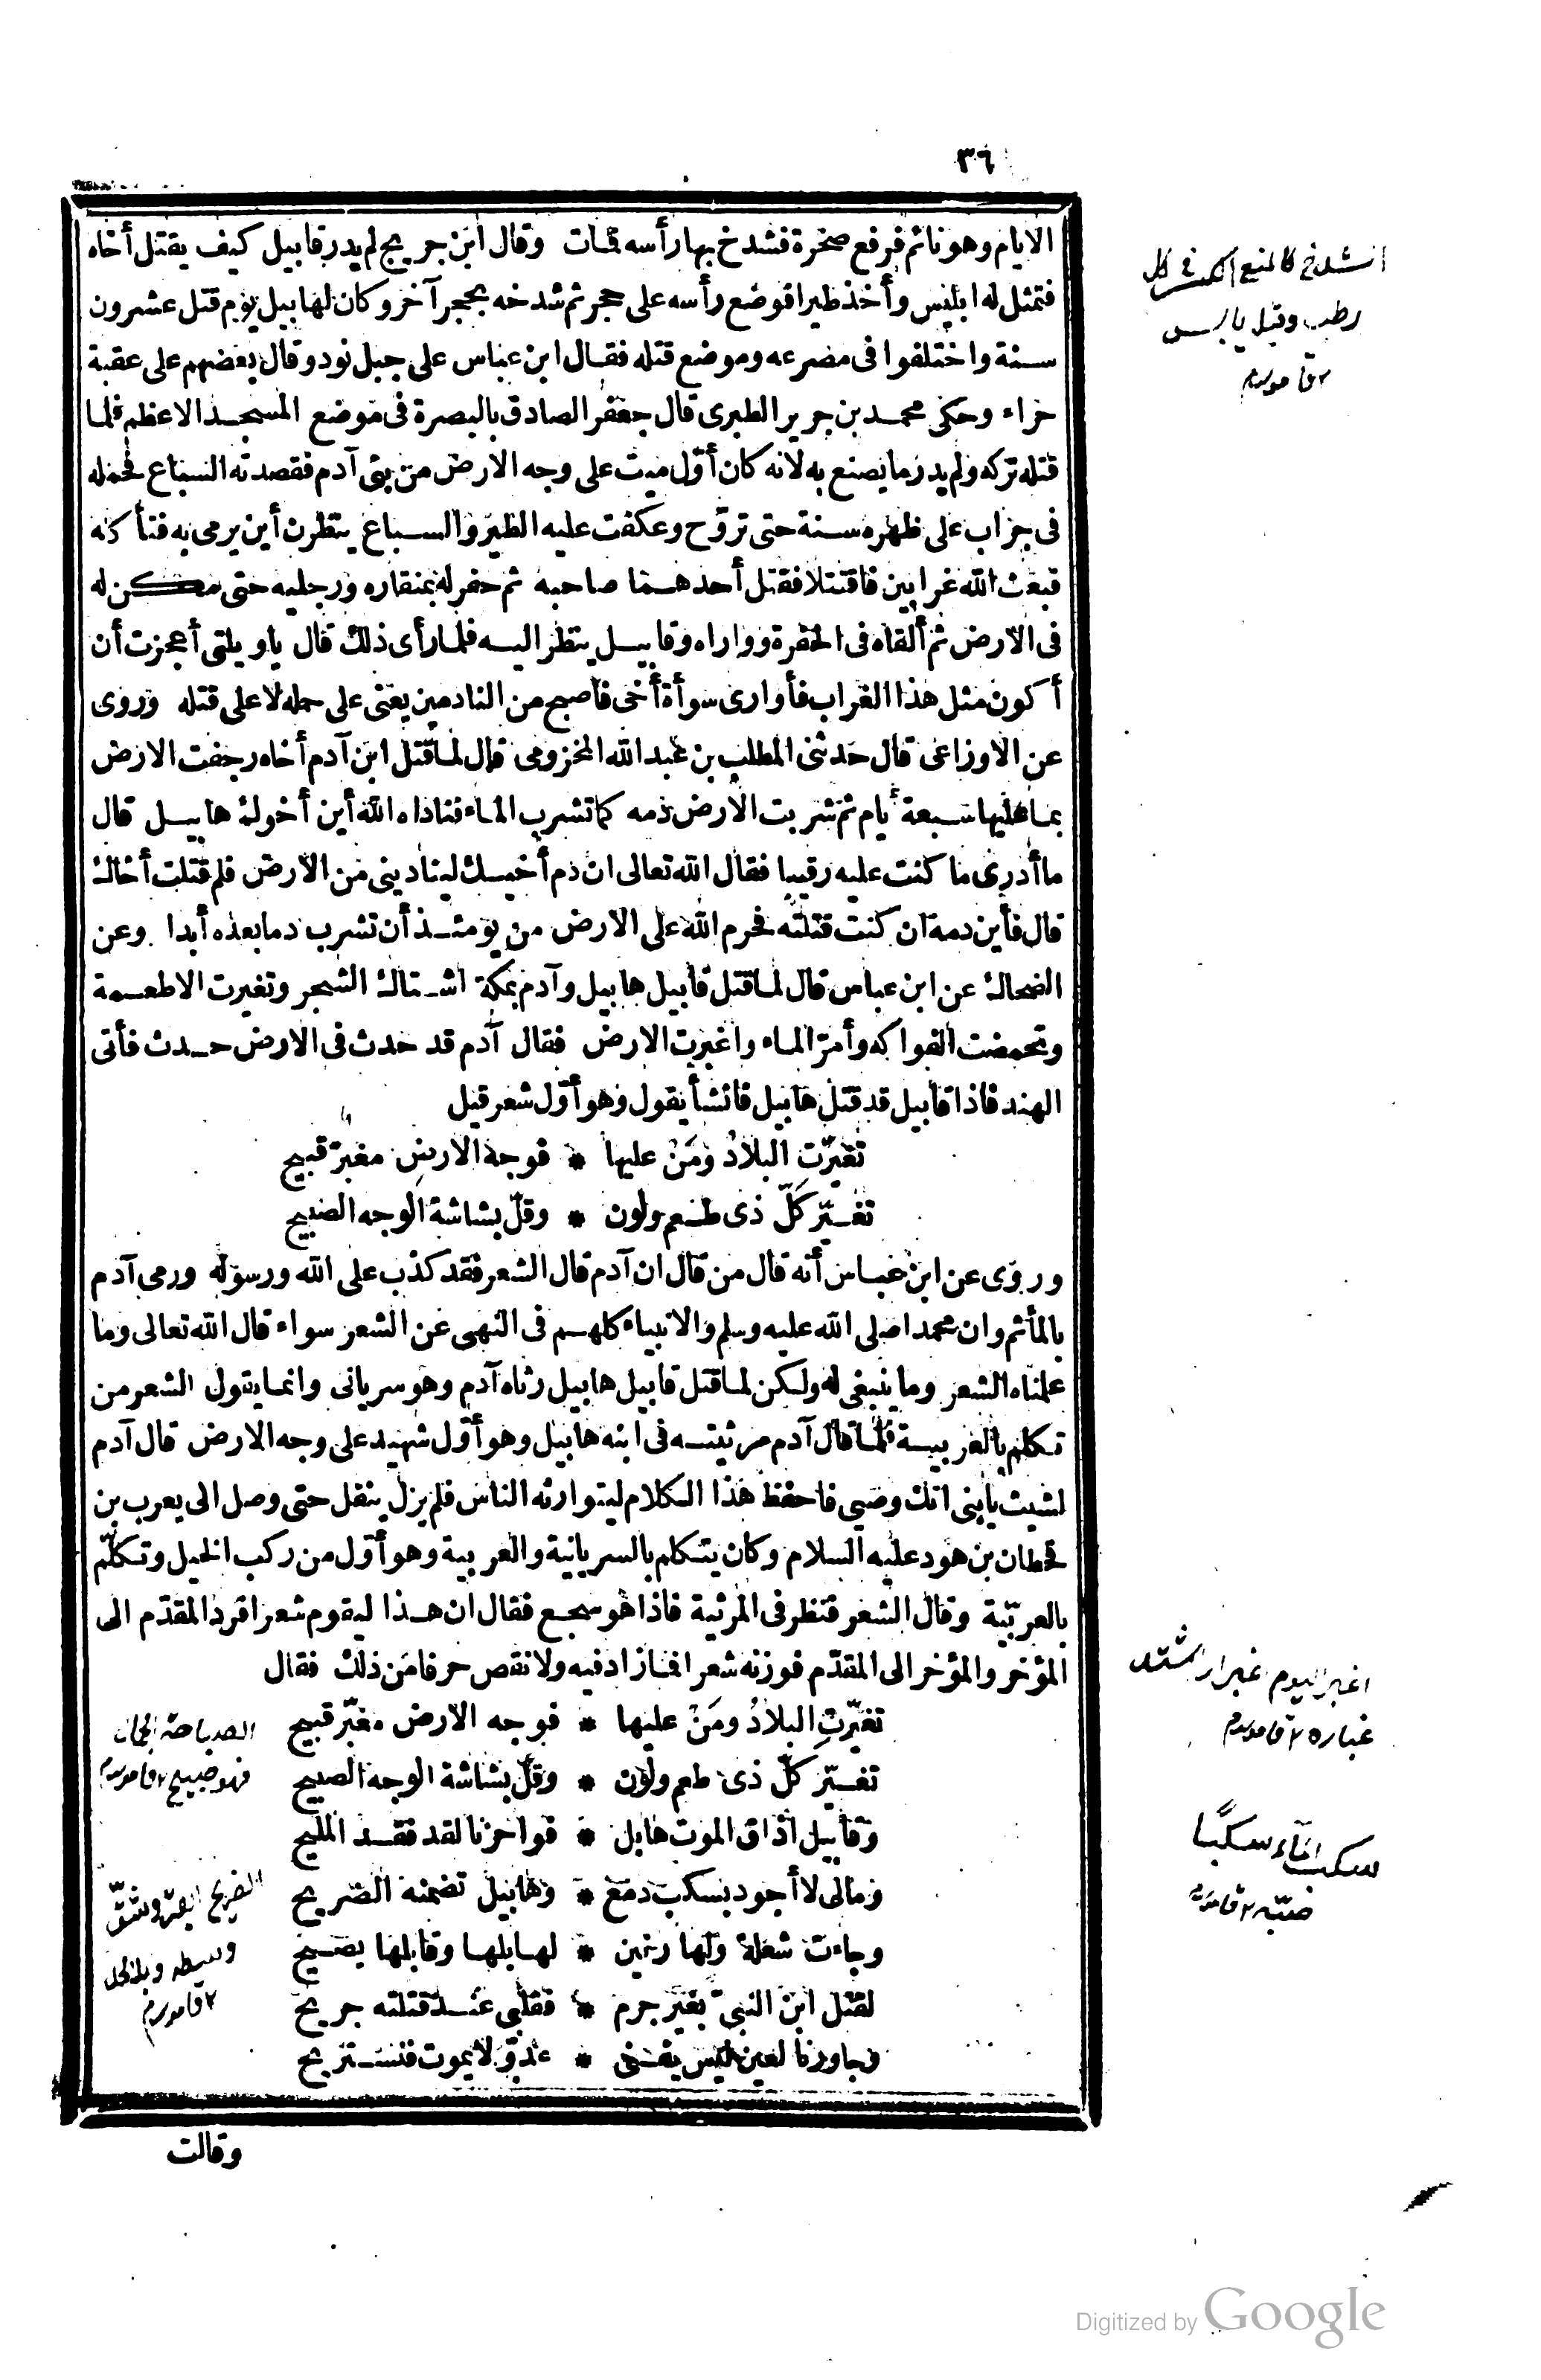 ٣٦
الايام وهو نائم فرفع صخرة فشدخ بها رأسه فمات وقال ابن جريج لم يدر قابيل كيف يقتل أخاه
فتمثل له ابليس وأخذ طيرا فوضع رأسه على حجر ثم شدخه بحجر آخر وكان لهابيل يوم قتل عشرون
سنة واختلفوا فى مصرعه وموضع قتله فقال ابن عباس على جبل نود وقال بعضهم على عقبة
حراء وحكى محمد بن جرير الطبرى قال جعفر الصادق بالبصرة فى موضع المسجد الاعظم فلما
قتله تركه ولم يدر ما يصنع به لانه كان أوّل ميت على وجه الارض من بنى آدم فقصدته السباع فحمله
فى جراب على ظهره سنة حتى تروّح وعكفت عليه الطير والسباع ينتظرن أين يرمى به فتأكله
فبعث الله غرابين فاقتتلا فقتل أحدهما صاحبه ثم حفر له بمنقاره ورجليه حتى مكن له
فى الارض ثم ألقاه فى الحفرة وواراه وقابيل ينظر اليه فلما رأى ذلك قال يا ويلتى أعجزت أن
أكون مثل هذا الغراب فأوارى سوأة أخى فأصبح من النادمين يعنى على حمله لا على قتله وروى
عن الاوزاعى قال حدثنى المطلب بن عبد الله المخزومى قال لما قتل ابن آدم أخاه رجفت الارض
بما عليها سبعة أيام ثم شربت الارض دمه كما تشرب الماء فناداه الله أين أخوك هابيل قال
ما أدرى ما كنت عليه رقيبا فقال الله تعالى ان دم أخيك لينادينى من الارض فلم قتلت أخاك
قال فأين دمه ان كنت قتلته فحرم الله على الارض من يومئذ أن تشرب دما بعده أبدا وعن
الضحاك عن ابن عباس قال لما قتل قابيل هابيل وآدم بمكة اشتاك الشجر وتغيرت الاطعمة
وتحمضت الفواكه وأمرّ الماء واغبرت الارض فقال آدم قد حدث فى الارض حدث فأتى
الهند فاذا قابيل قد قتل هابيل فانشأ يقول وهو أوّل شعر قيل
تغيّرتِ البلادُ ومَنْ عليها * فوجه الارض مغبرّ قبيح
تغيّر كلّ ذى طعم ولون * وقلّ بشاشة الوجه الصبيح
وروى عن ابن عباس أنه قال من قال ان آدم قال الشعر فقد كذب على الله ورسوله ورمى آدم
بالمأثم وان محمدا صلى الله عليه وسلم والانبياء كلهم فى النهى عن الشعر سواء قال الله تعالى وما
علمناه الشعر وما ينبغى له ولكن لما قتل قابيل هابيل رثاه آدم وهو سريانى وانما يقول الشعر من
تكلم بالعربية فلما قال آدم مرثيته فى ابنه هابيل وهو أوّل شهيد على وجه الارض قال آدم
لشيث يا بنى انك وصيى فاحفظ هذا الكلام ليتوارثه الناس فلم يزل ينقل حتى وصل الى يعرب بن
قحطان بن هود عليه السلام وكان يتكلم بالسريانية والعربية وهو أوّل من ركب الخيل وتكلّم
بالعربيّة وقال الشعر فنظر فى المرثية فاذا هو سجع فقال ان هذا ليقوم شعرا فردّ المقدّم الى
المؤخر والمؤخر الى المقدّم فوزنه شعرا فما زاد فيه ولا نقص حرفا من ذلك فقال
تغيّرتِ البلادُ ومَنْ عليها * فوجه الارض مغبّر قبيح
تغيّر كلّ ذى طعم ولون * وقلّ بشاشة الوجه الصبيح
وقابيل أذاق الموت هابل * فواحزنا لقد فقد المليح
ومالى لا أجود بسكب دمع * وهابيل تضمنه الضريح
وجاءت شعلة ولها رنين * لهابلها وقابلها يصيح
لقتل ابن النبىّ بغير جرم * فقلبى عند قتلته جريح
وجاورنا لعين ليس يفنى * عدوّ لا يموت فنستريح
وقالت
الشدخ كالمنع الكسر فى كل
رطب وقيل يابس
٢ قاموس
اغبر اليوم غبرارا اشتد
غباره ٢ قاموس
سكب الماء سكبًا
صبّه ٢ قاموس
الصباحة الجمال
فهو صبيح ٢ قاموس
الضريح القبر وشقّ
وسطه
٢ قاموس
Digitized by Google